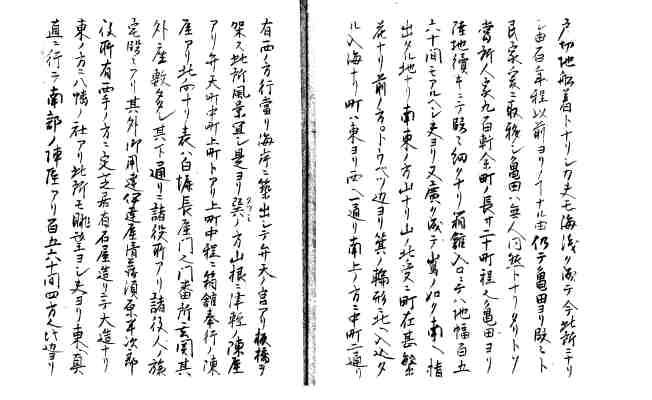 戸切地船着トナリシカ夫モ海浅ク成テ今此所ニナリ
シ由百年程以前ヨリノ ナル由仍テ亀田ヨリ段ミト
民家ヲ客ニ取移シ亀田ハ無人 同然トナリタリトソ
当所人家九百軒余町ノ長サ二十町程 亀田ヨリ
陸地続キニテ段ミ細クナリ箱館入口ニテハ地幅百五
六十間モアルヘシ夫ヨリ又広ク成テ嶌ノ如ク南ヘ指
出タル地ナリ南東ノ方山ナリ山ノ北受ニ町在甚繁
花ナリ前ノ方 トウヘツ辺ヨリ箕ノ輪形ニ北ヘ入込タ
ル入海ナリ町ハ東ヨリ西ヘ一通リ南上ノ方ニ中町二通リ
有西ノ方行当リ海岸ニ築出シテ弁天ノ宮アリ板橋ヲ
架ス此所風景宜シ是ヨリ巽ノ方山根ニ津軽ノ陣屋
アリ弁天町中町上町トアリ上町中程ニ箱館奉行ノ陣
屋アリ北向ナリ表ハ白塀長屋門 門番所玄関其
外座敷多シ其下通リニ諸役所アリ諸役人ノ旅
宅段ミアリ其外御用達伊達屋 須原半次郎
役所有西手ノ方ニ定芝居有石屋造リニテ大造ナリ
東ノ方ニ八幡ノ社アリ此所モ眺望ヨシ夫ヨリ東ヘ真
直ニ行テ南部ノ陣屋アリ百五六十間四方 此辺ヨリ